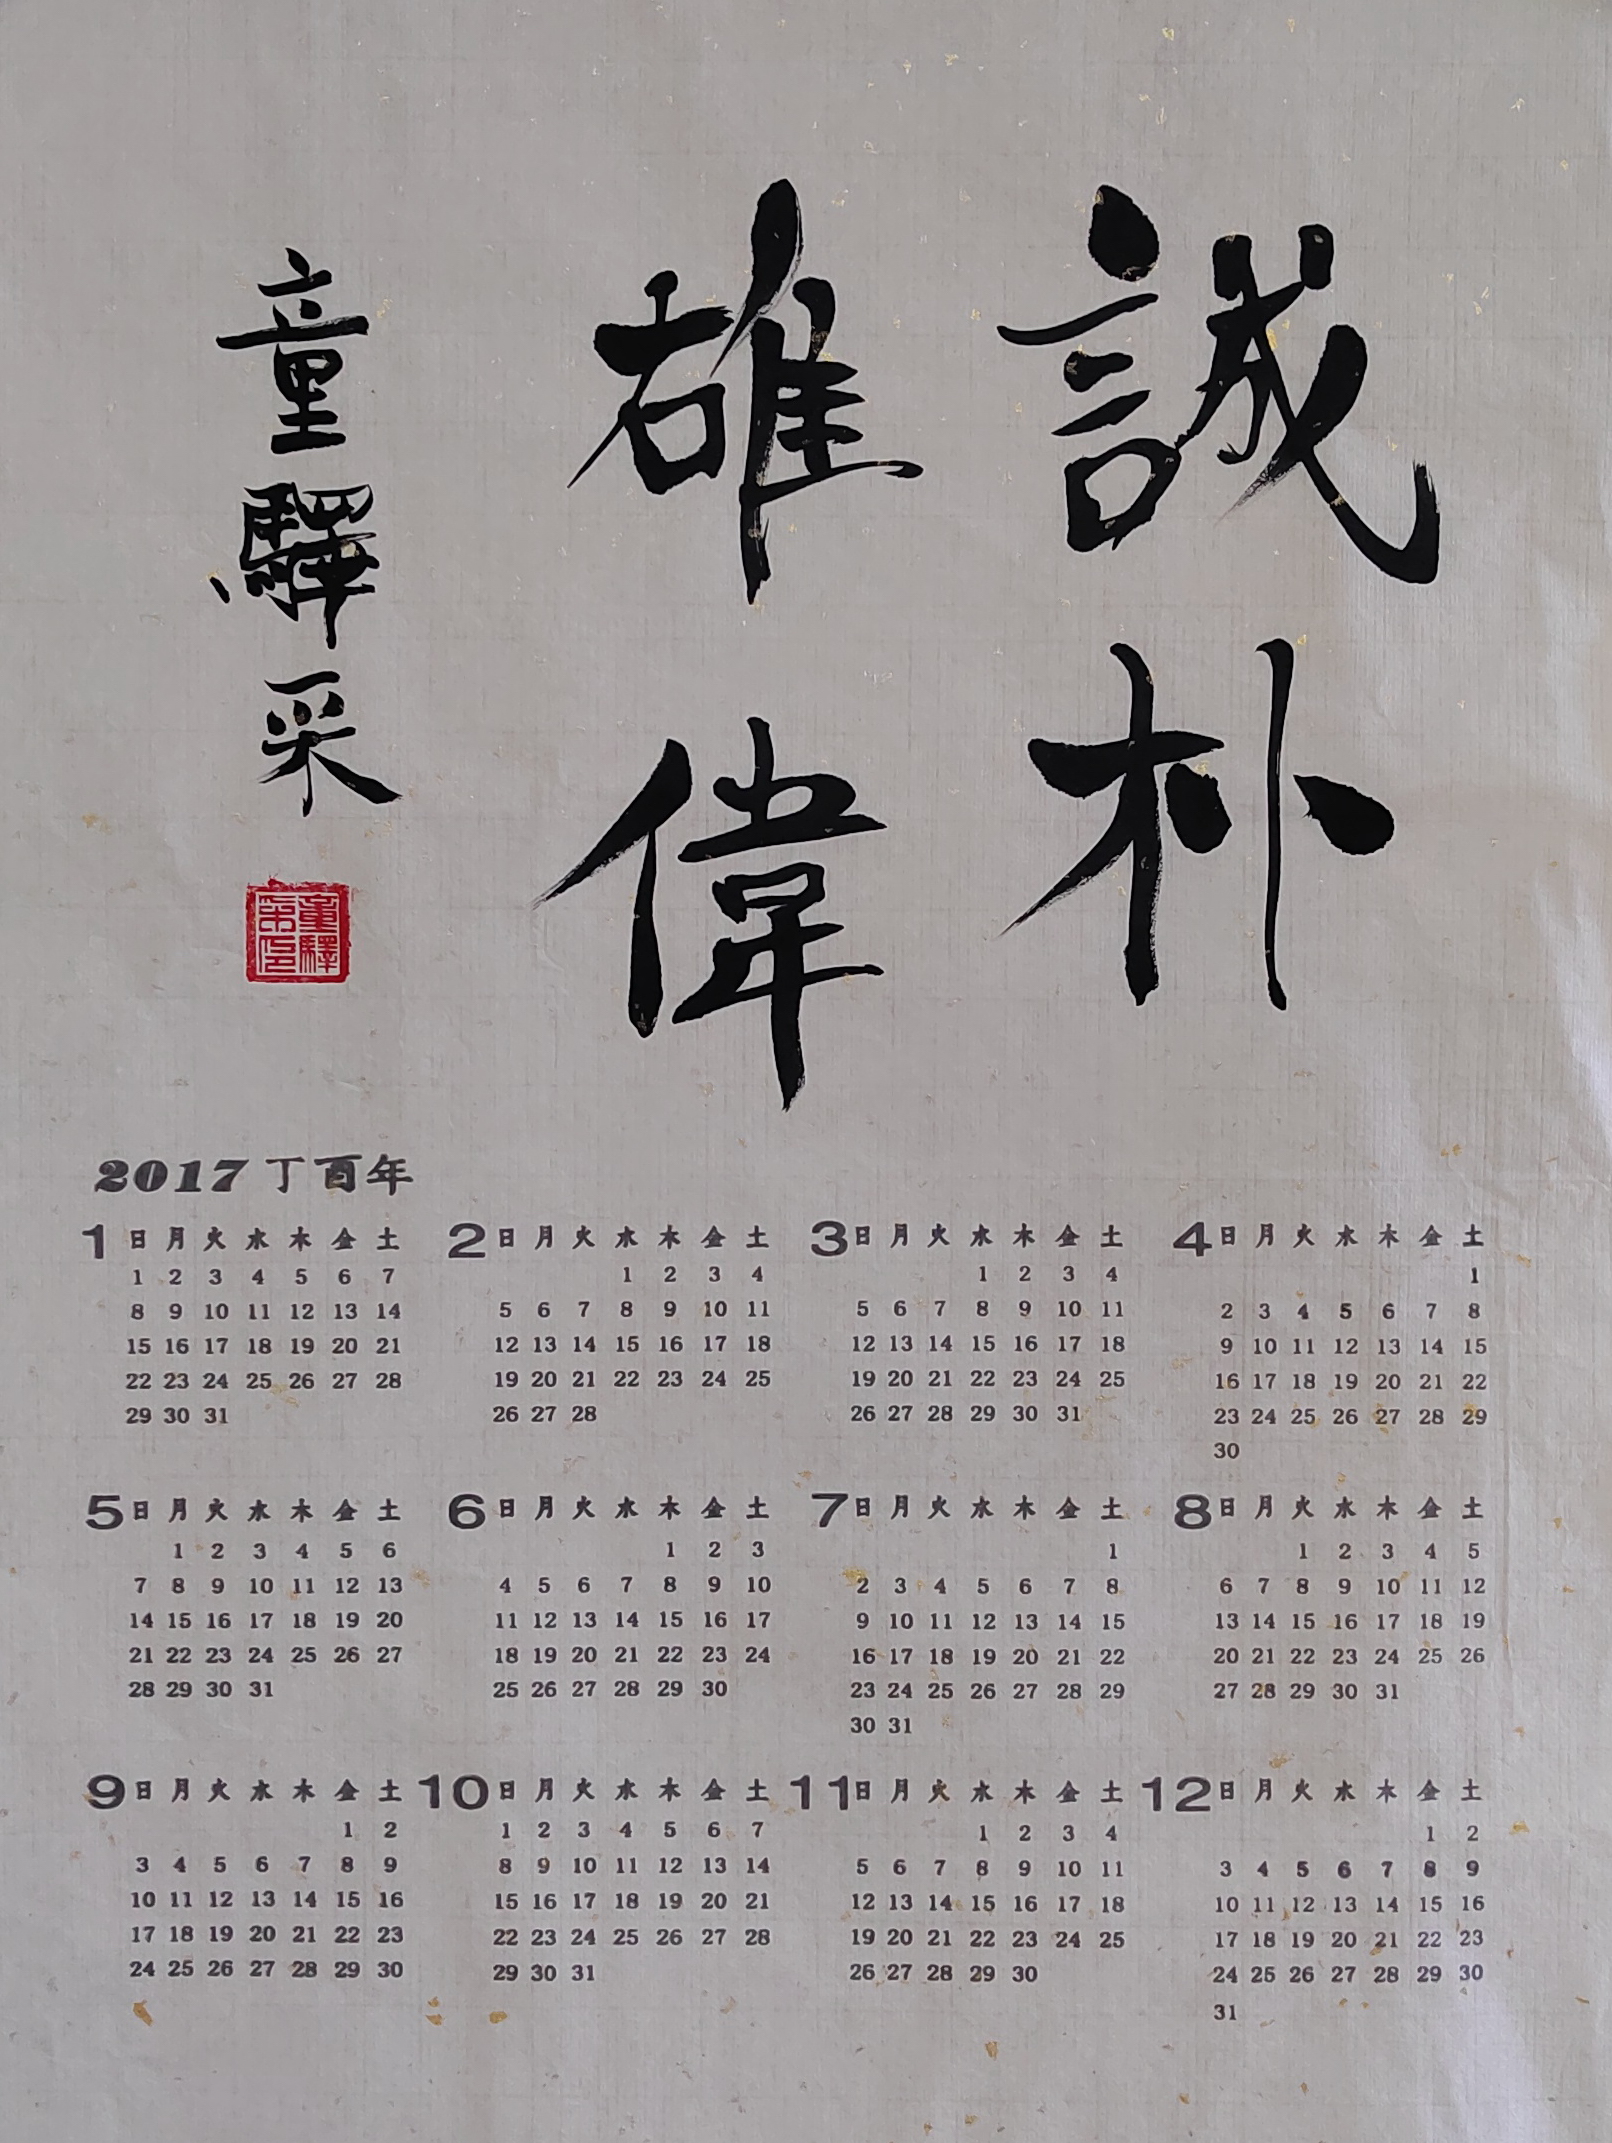 誠朴
雄偉
童驛采
2017 丁酉年
1 日 月 火 水 木 金 土
1 2 3 4 5 6 7
8 9 10 11 12 13 14
15 16 17 18 19 20 21
22 23 24 25 26 27 28
29 30 31
2 日 月 火 水 木 金 土
1 2 3 4
5 6 7 8 9 10 11
12 13 14 15 16 17 18
19 20 21 22 23 24 25
26 27 28
3 日 月 火 水 木 金 土
1 2 3 4
5 6 7 8 9 10 11
12 13 14 15 16 17 18
19 20 21 22 23 24 25
26 27 28 29 30 31
4 日 月 火 水 木 金 土
1
2 3 4 5 6 7 8
9 10 11 12 13 14 15
16 17 18 19 20 21 22
23 24 25 26 27 28 29
30
5 日 月 火 水 木 金 土
1 2 3 4 5 6
7 8 9 10 11 12 13
14 15 16 17 18 19 20
21 22 23 24 25 26 27
28 29 30 31
6 日 月 火 水 木 金 土
1 2 3
4 5 6 7 8 9 10
11 12 13 14 15 16 17
18 19 20 21 22 23 24
25 26 27 28 29 30
7 日 月 火 水 木 金 土
1
2 3 4 5 6 7 8
9 10 11 12 13 14 15
16 17 18 19 20 21 22
23 24 25 26 27 28 29
30 31
8 日 月 火 水 木 金 土
1 2 3 4 5
6 7 8 9 10 11 12
13 14 15 16 17 18 19
20 21 22 23 24 25 26
27 28 29 30 31
9 日 月 火 水 木 金 土
1 2
3 4 5 6 7 8 9
10 11 12 13 14 15 16
17 18 19 20 21 22 23
24 25 26 27 28 29 30
10 日 月 火 水 木 金 土
1 2 3 4 5 6 7
8 9 10 11 12 13 14
15 16 17 18 19 20 21
22 23 24 25 26 27 28
29 30 31
11 日 月 火 水 木 金 土
1 2 3 4
5 6 7 8 9 10 11
12 13 14 15 16 17 18
19 20 21 22 23 24 25
26 27 28 29 30
12 日 月 火 水 木 金 土
1 2
3 4 5 6 7 8 9
10 11 12 13 14 15 16
17 18 19 20 21 22 23
24 25 26 27 28 29 30
31